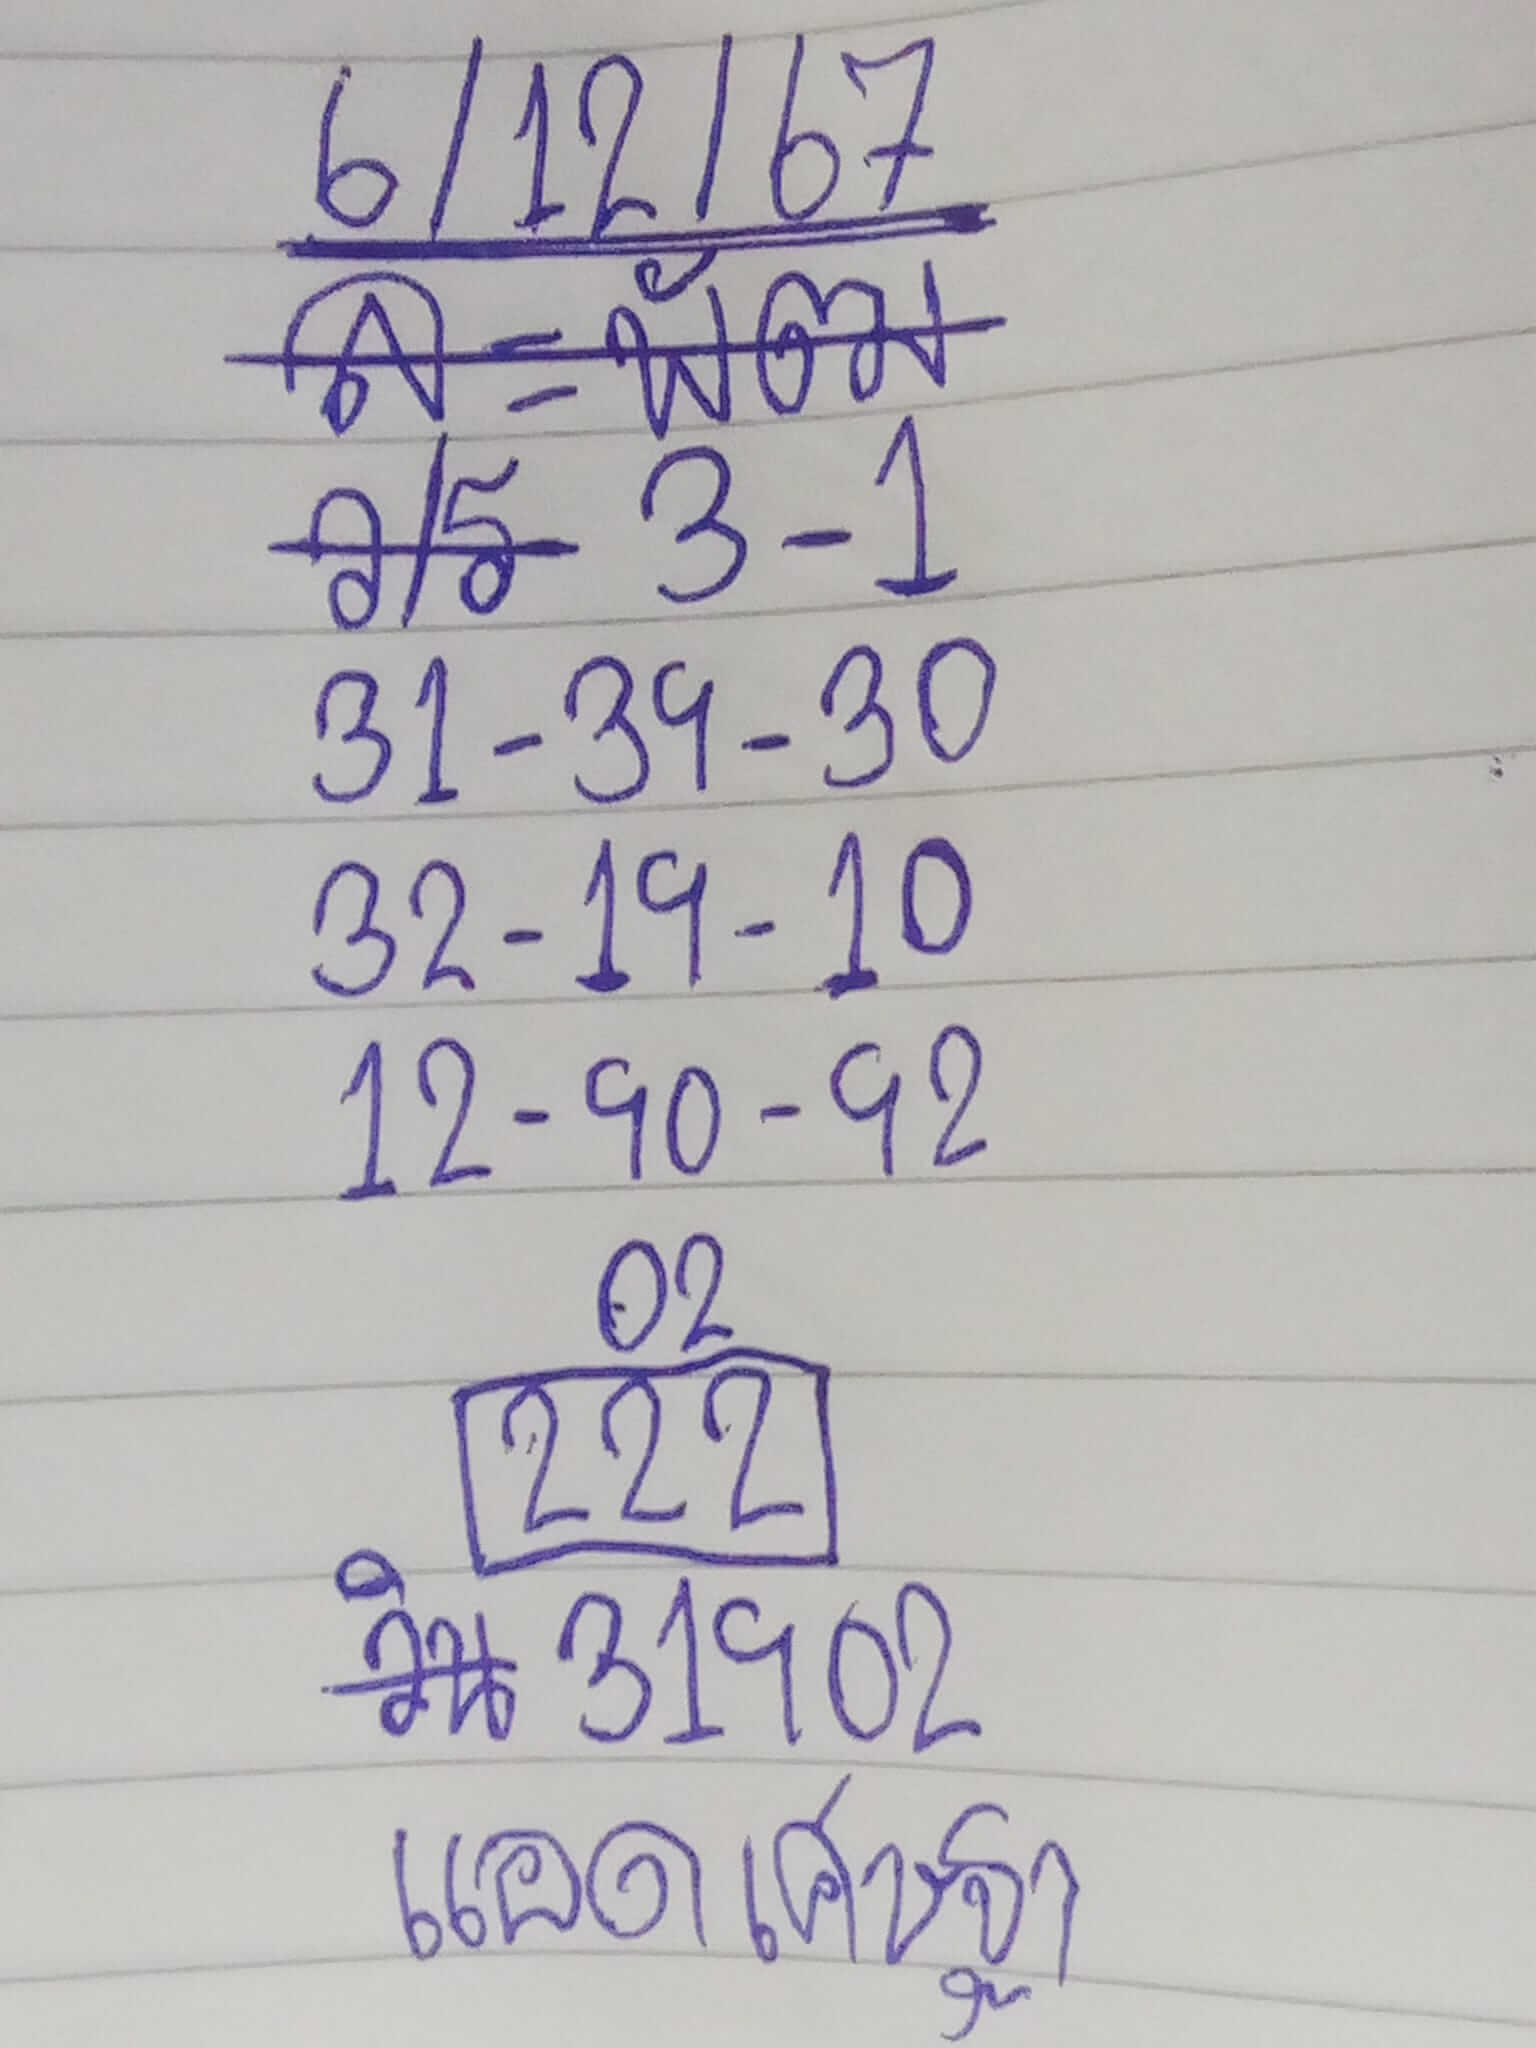 6/12/67
ล=พัฒนา
ว/ร 3-1
31-39-30
32-19-10
12-90-92
02
222
วิน 31902
แอด เศษฐา